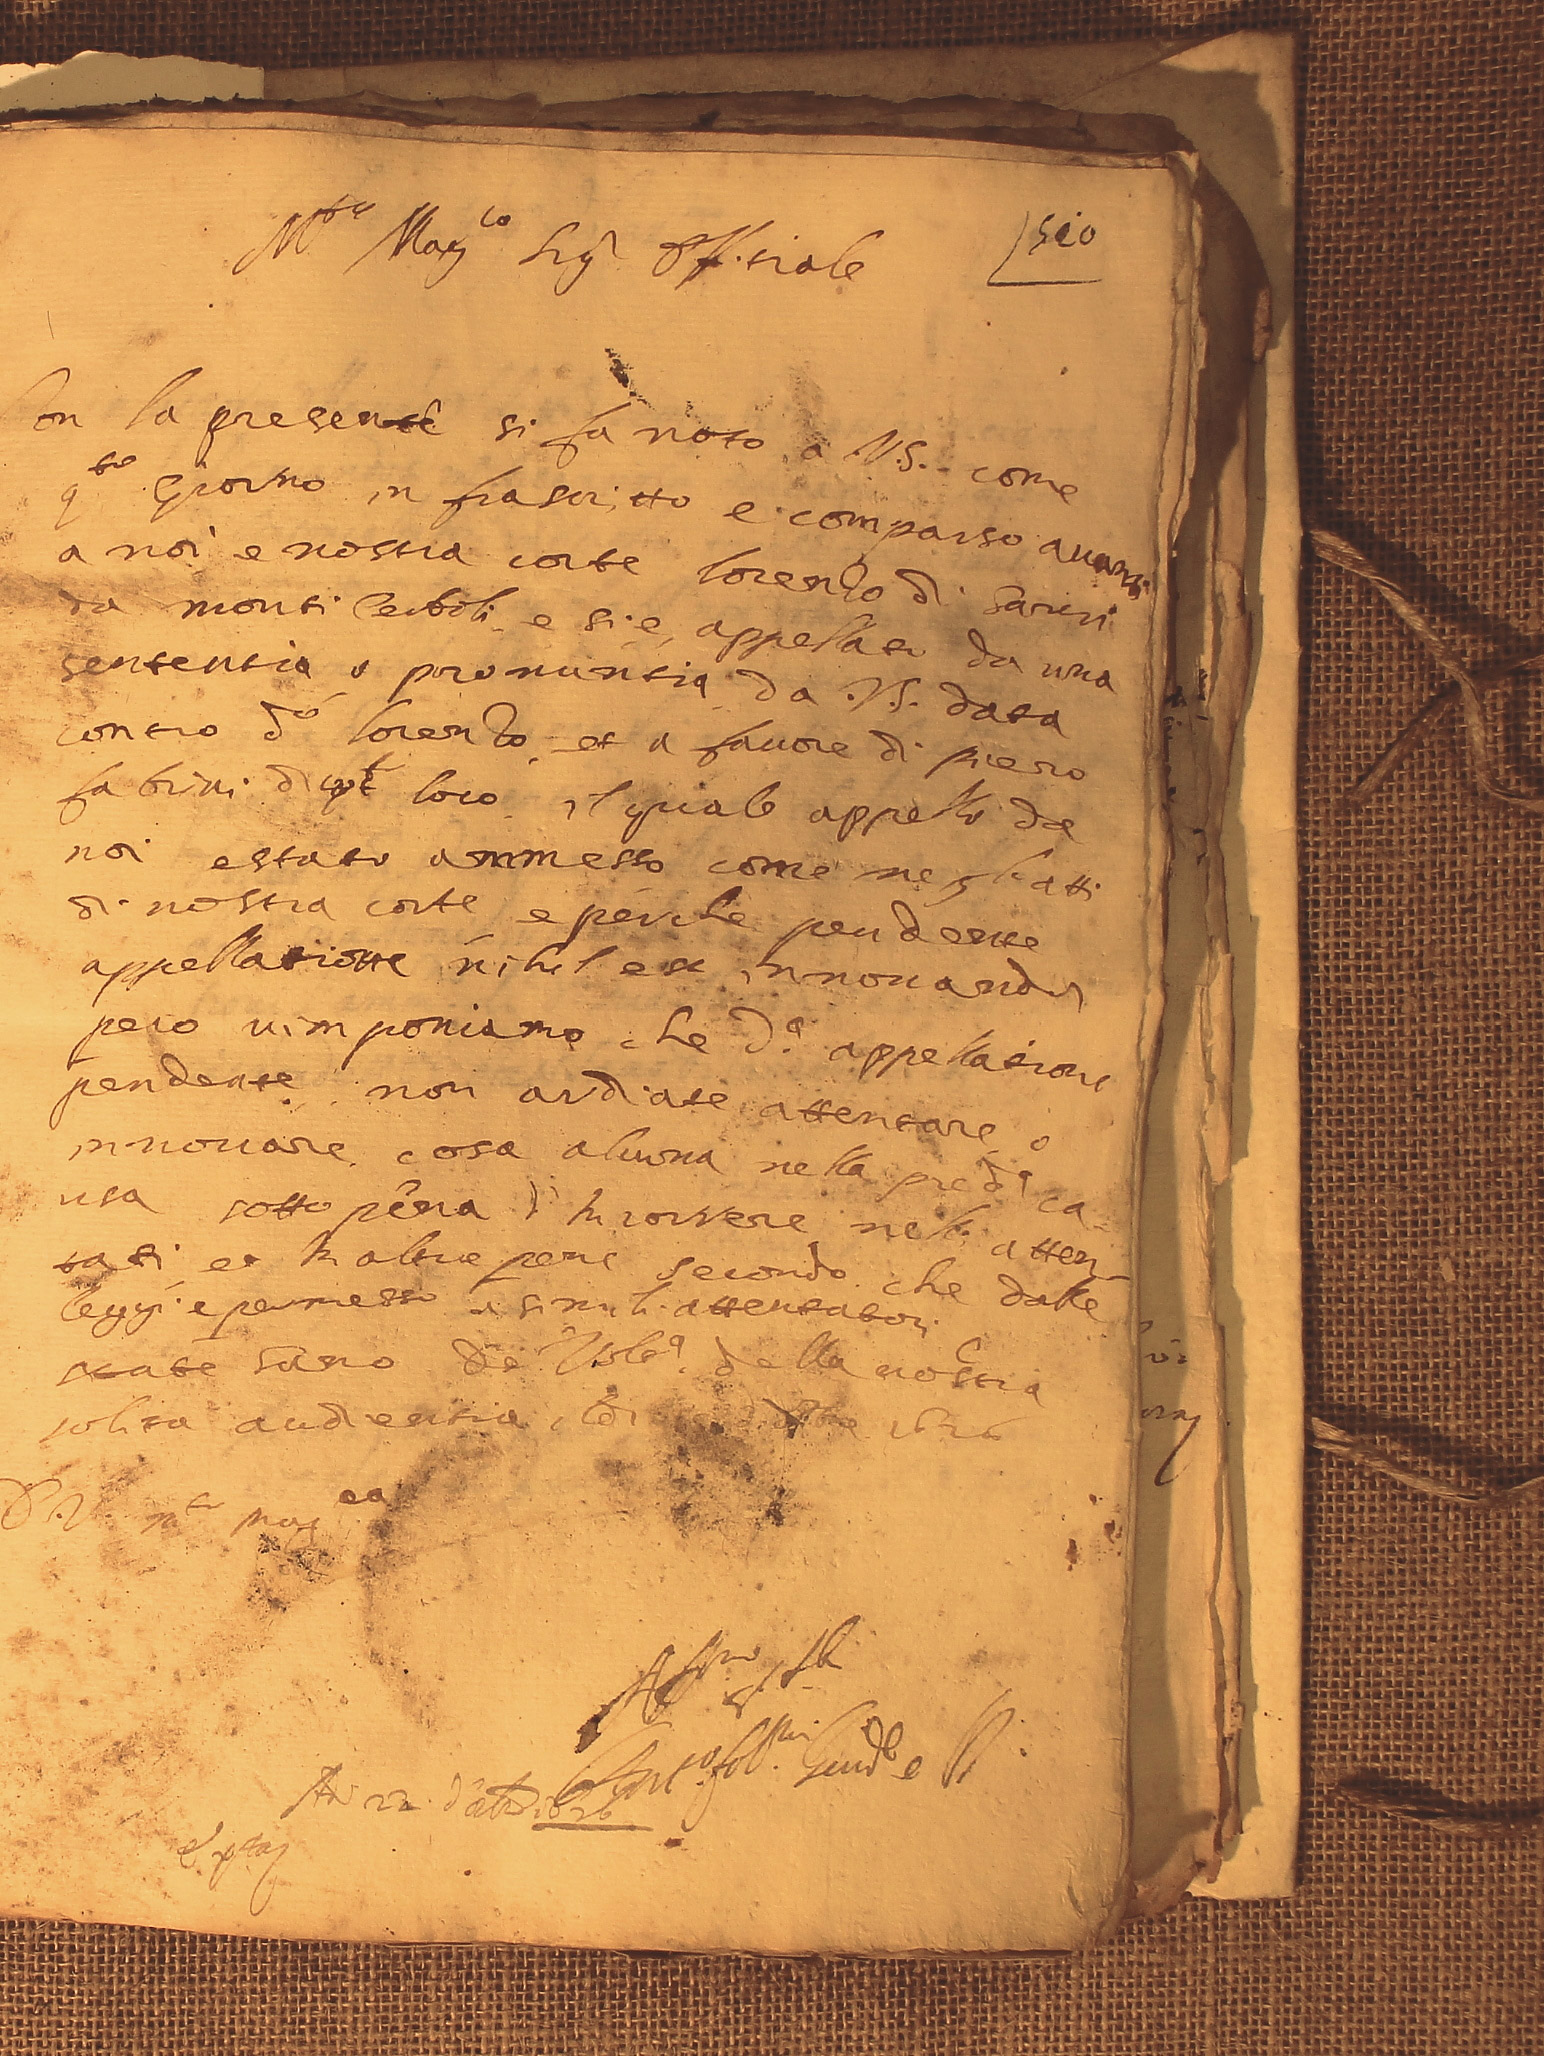 Mto Magco Sigr Offitiale
510
Con la presente si fa noto a V.S. come
qto giorno in frascritto e comparso auanti
a noi e nostra corte lorenzo di
da monti Cerboli e si e appellato da una
sententia o pronuntia da V.S. data
contro do lorenzo et a fauore di piero
fabrini di loco il quale appello da
noi e stato ammesso come negli atti
di nostra corte e perche pendente
appellatione nihil est innouandu
pero uimponiamo che da appellatione
pendente non ardiate attentare o
innouare cosa alcuna nella preda ca
usa sotto pena d'incorrere nelli atten-
tati et in altre pene secondo che dalle
leggi e permesso a simili attentatori
state sano della nostra
solita audientia 1626
D.V. mto magca
Adi 22 d 1626